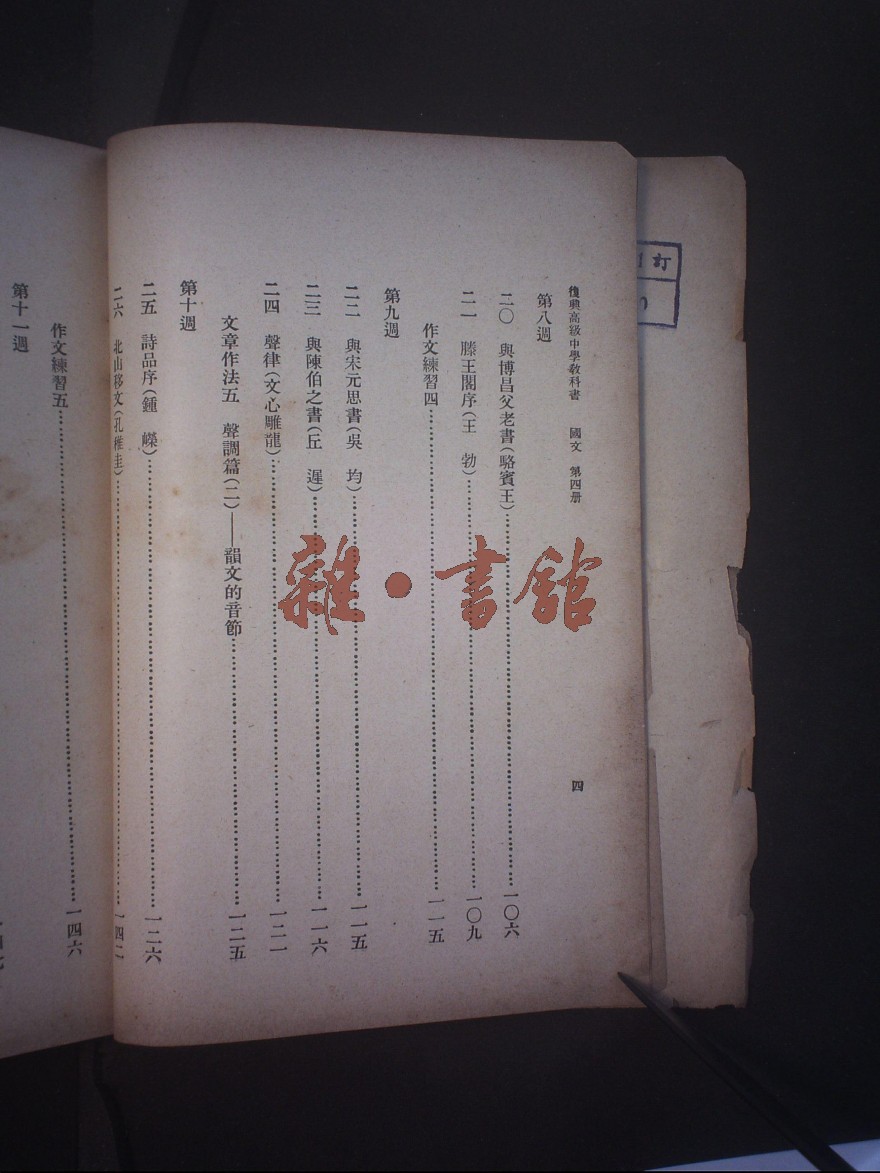 復興高級中學教科書 國文 第四册 四
第八週
二〇 與博昌父老書(駱賓王)……一〇六
二一 滕王閣序(王 勃)……一〇九
作文練習四……一一五
第九週
二二 與宋元思書(吳 均)……一一五
二三 與陳伯之書(丘 遲)……一一六
二四 聲律(文心雕龍)……一二一
文章作法五 聲調篇(二)——韻文的音節……一二五
第十週
二五 詩品序(鍾 嶸)……一二六
二六 北山移文(孔稚圭)……一四二
作文練習五……一四六
第十一週
雜·書館
訂